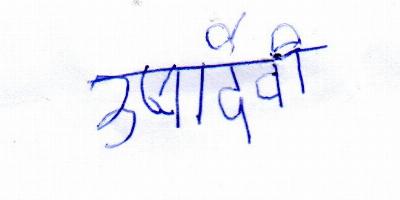 उषादेवी